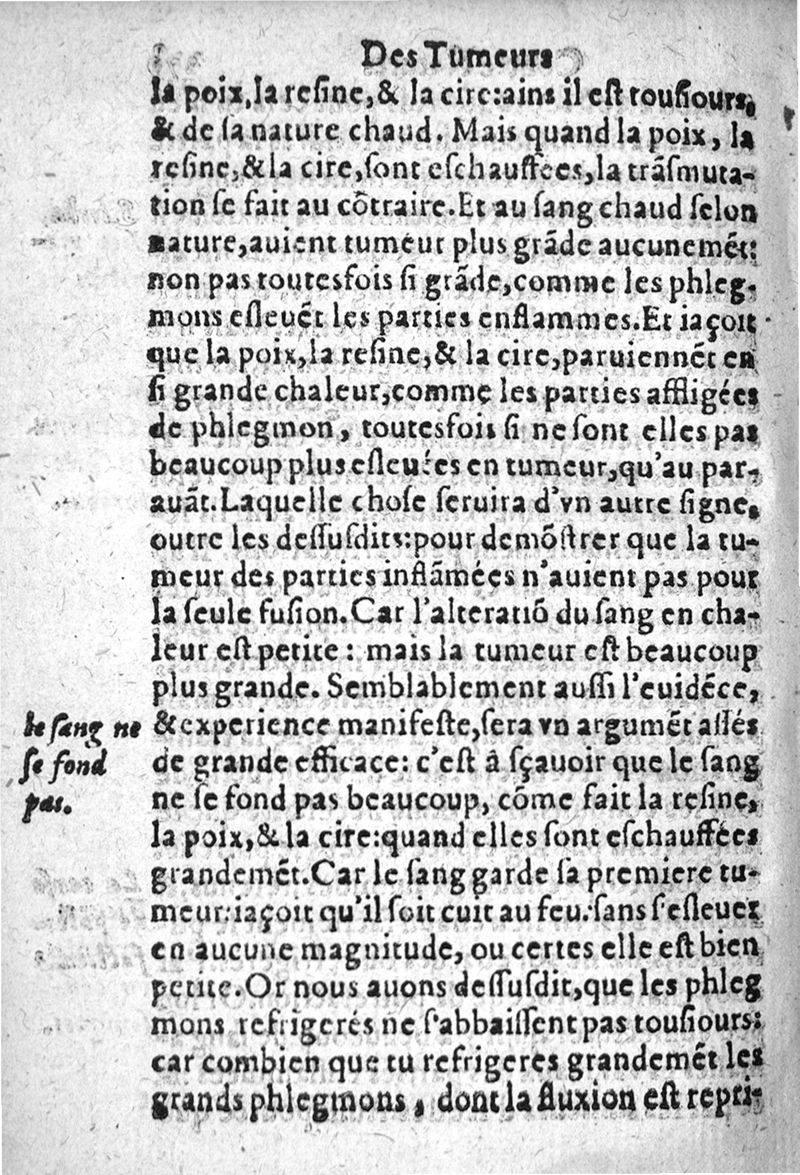 Des Tumeurs
la poix, la resine, & la cire: ains il est tousiours,
& de sa nature chaud. Mais quand la poix, la
resine, & la cire, sont eschauffees, la trãsmuta-
tion se fait au cõtraire. Et au sang chaud selon
nature, auient tumeur plus grãde aucunemẽt:
non pas toutesfois si grãde, comme les phleg-
mons esleuẽt les parties enflammes. Et iaçoit
que la poix, la resine, & la cire, paruiennẽt en
si grande chaleur, comme les parties affligées
de phlegmon, toutesfois si ne sont elles pas
beaucoup plus esleuées en tumeur, qu'au par-
auãt. Laquelle chose seruira d'vn autre signe,
outre les dessusdits: pour demõstrer que la tu-
meur des parties inflãmées n'auient pas pour
la seule fusion. Car l'alteratiõ du sang en cha-
leur est petite: mais la tumeur est beaucoup
plus grande. Semblablement aussi l'euidẽce,
& experience manifeste, sera vn argumẽt assés
de grande efficace: c'est â sçauoir que le sang
ne se fond pas beaucoup, cõme fait la resine,
la poix, & la cire: quand elles sont eschauffées
grandemẽt. Car le sang garde sa premiere tu-
meur: iaçoit qu'il soit cuit au feu: sans s'esleuer
en aucune magnitude, ou certes elle est bien
petite. Or nous auons dessusdit, que les phleg
mons refrigerés ne s'abbaissent pas tousiours:
car combien que tu refrigeres grandemẽt les
grands phlegmons, dont la fluxion est repri-
le sang ne
se fond
pas.